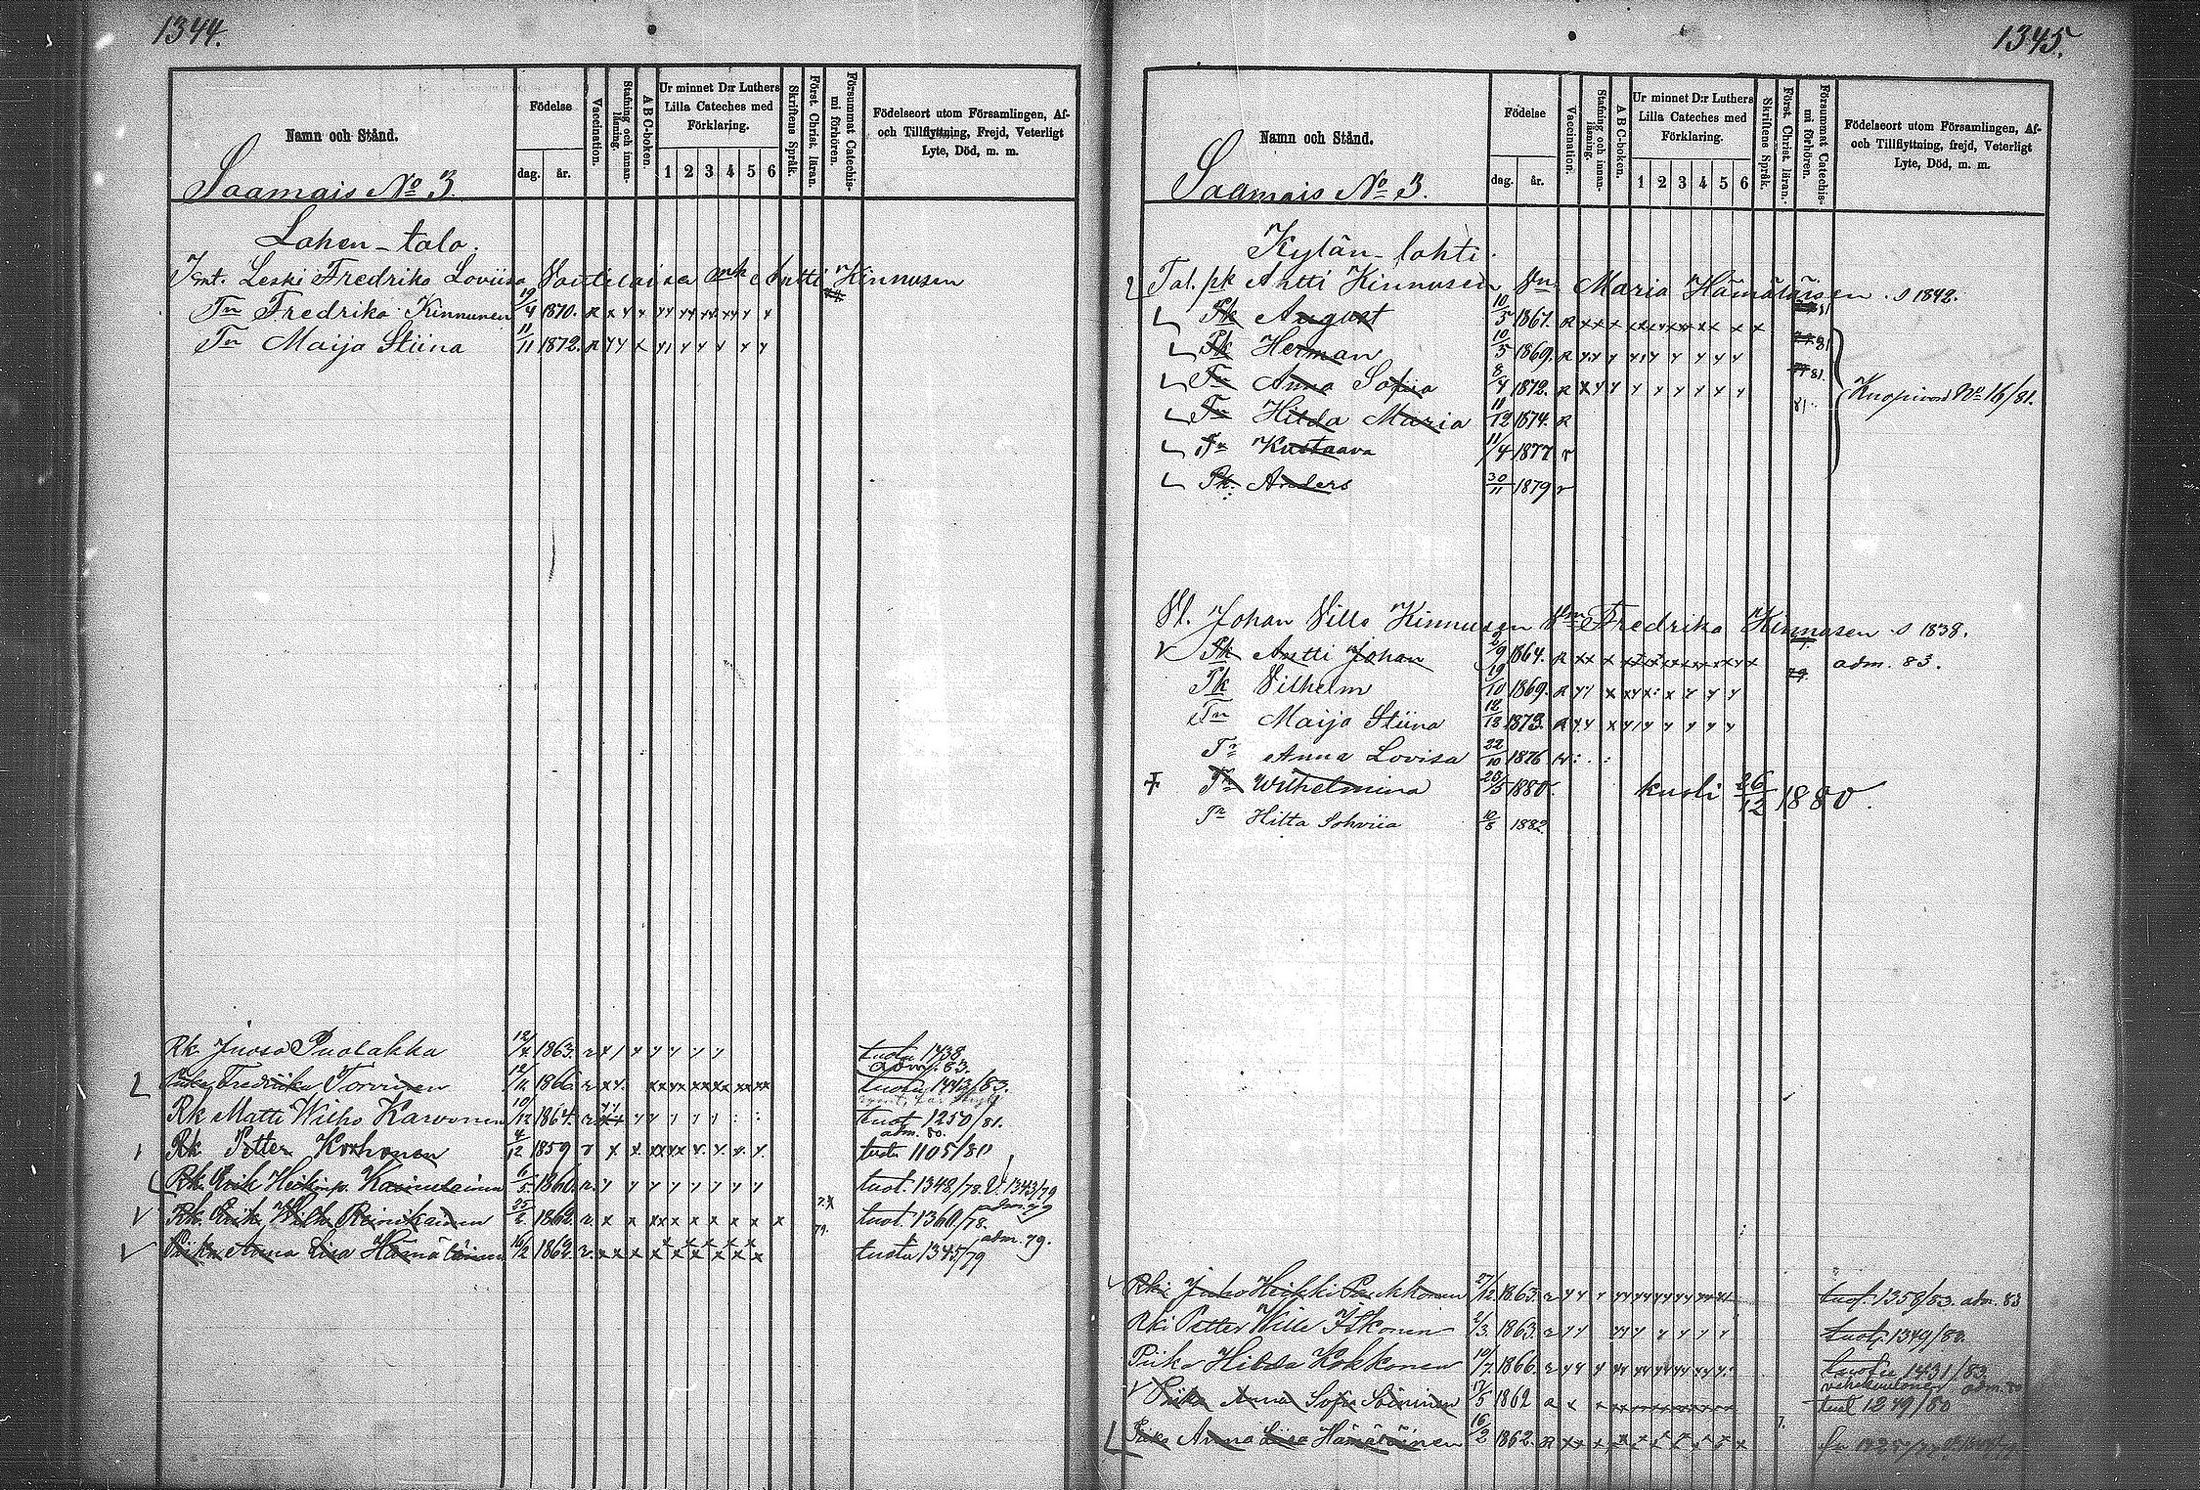 1344.
Namn och Stånd.
Födelse
dag.
år.
Vaccination.
Stafning och innanläsning.
A B C-boken.
Ur minnet D:r Luthers Lilla Cateches med Förklaring.
1 2 3 4 5 6
Skriftens Språk.
Först. Christ. läran.
Försummat Catechismi förhören.
Födelseort utom Församlingen, Af- och Tillflyttning, Frejd, Veterligt Lyte, Död, m. m.
Saamais No 3.
Lahen-talo.
Leski Fredrika Loviisa mk Antti Kinnusen
Tr Fredrika Kinnunen 19/4 1870.
Tr Maija Stiina 11/11 1872.
Rk. Juoso Puolakka 12/7 1863. tuotu 1438
adm. 83.
Piika Fredrika Torvinen 1866 tuotu 1443/83.
Rk Matti Wilho Karvonen 10/12 1864. tuot 1250/81.
adm. 80.
Rk Petter Korhonen 4/12 1859 tuotu 1105/80
Rk. Erik Heikinp. 6/5 1860. tuot. 1348/78. 1343/79
Rk. Erik Wilh. Reinikainen 25/2 1862. tuot. 1360/78. adm. 79
Piika Anna Lisa Hämäläinen 16/2 1862. tuotu 1345/79 adm. 79.
1345.
Namn och Stånd.
Födelse
dag.
år.
Vaccination.
Stafning och innanläsning.
A B C-boken.
Ur minnet D:r Luthers Lilla Cateches med Förklaring.
1 2 3 4 5 6
Skriftens Språk.
Först. Christ. läran.
Försummat Catechismi förhören.
Födelseort utom Församlingen, Af- och Tillflyttning, frejd, Veterligt Lyte, Död, m. m.
Saamais No 3.
Kylän-lahti.
Tal. pk Antti Kinnusen Vm Maria Hämäläisen s 1842.
Pk August 10/5 1867. 81
Pk Herman 10/5 1869. 81
Tr Anna Sofiia 8/4 1872. 81.
Tr Hilda Maria 11/12 1874. 81.
Tr Kustaava 11/4 1877
Pk. Anders 30/11 1879
No 16/81.
Vl. Johan Ville Kinnusen Vm Fredrika Kinnusen s 1838.
Pk Antti Johan 1864. adm. 83.
Pk Vilhelm 19/10 1869.
Tr Maija Stiina 1873.
Tr Anna Lovisa 22/10 1876
Tr Wilhelmina 23/5 1880. kuoli 26/12 1880.
Tr Hilta Sohviia 10/8 1882
Rki Juho Heikki Puukkonen 27/12 1863. tuot. 1358/83. adm. 83
Rki Petter Wille Itkonen 2/3 1863. tuotu 1349/80.
Piika Hilda Kokkonen 10/7 1866. tuotu 1431/83.
Piika Anna Sofia Soininen 17/5 1862 tuot 1249/80 adm. 80
Piika Anna Liisa Hämäläinen 16/2 1862.